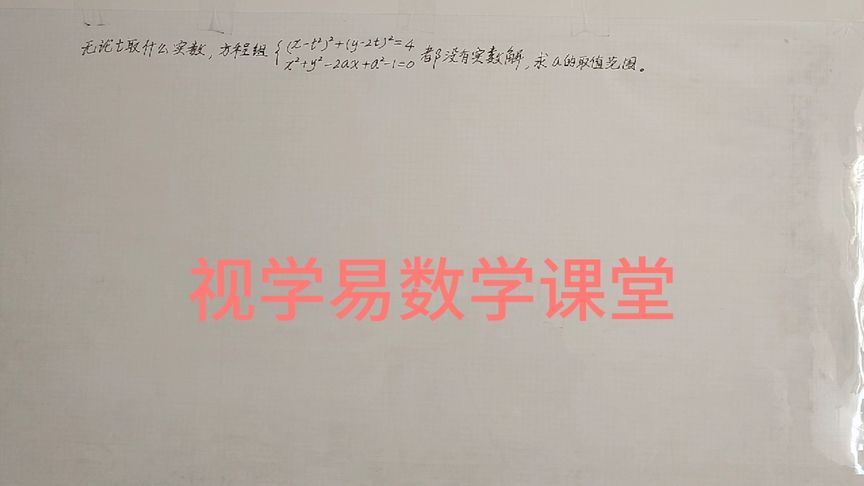 无论t取什么实数，方程组{(x-t²)²+(y-2t)²=4
x²+y²-2ax+a²-1=0 都没有实数解，求a的取值范围。
视学易数学课堂